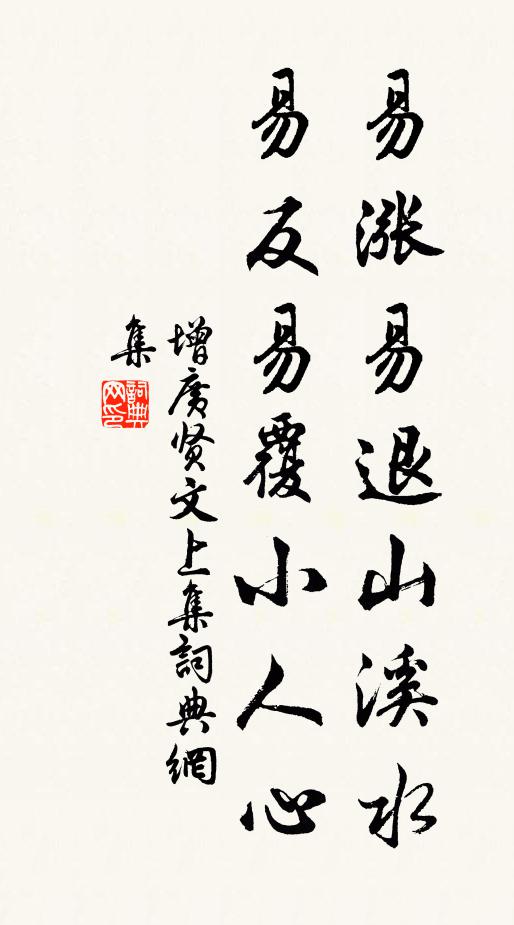 易漲易退山溪水
易反易覆小人心
增廣贤文上集詞典網
集
詞典网印